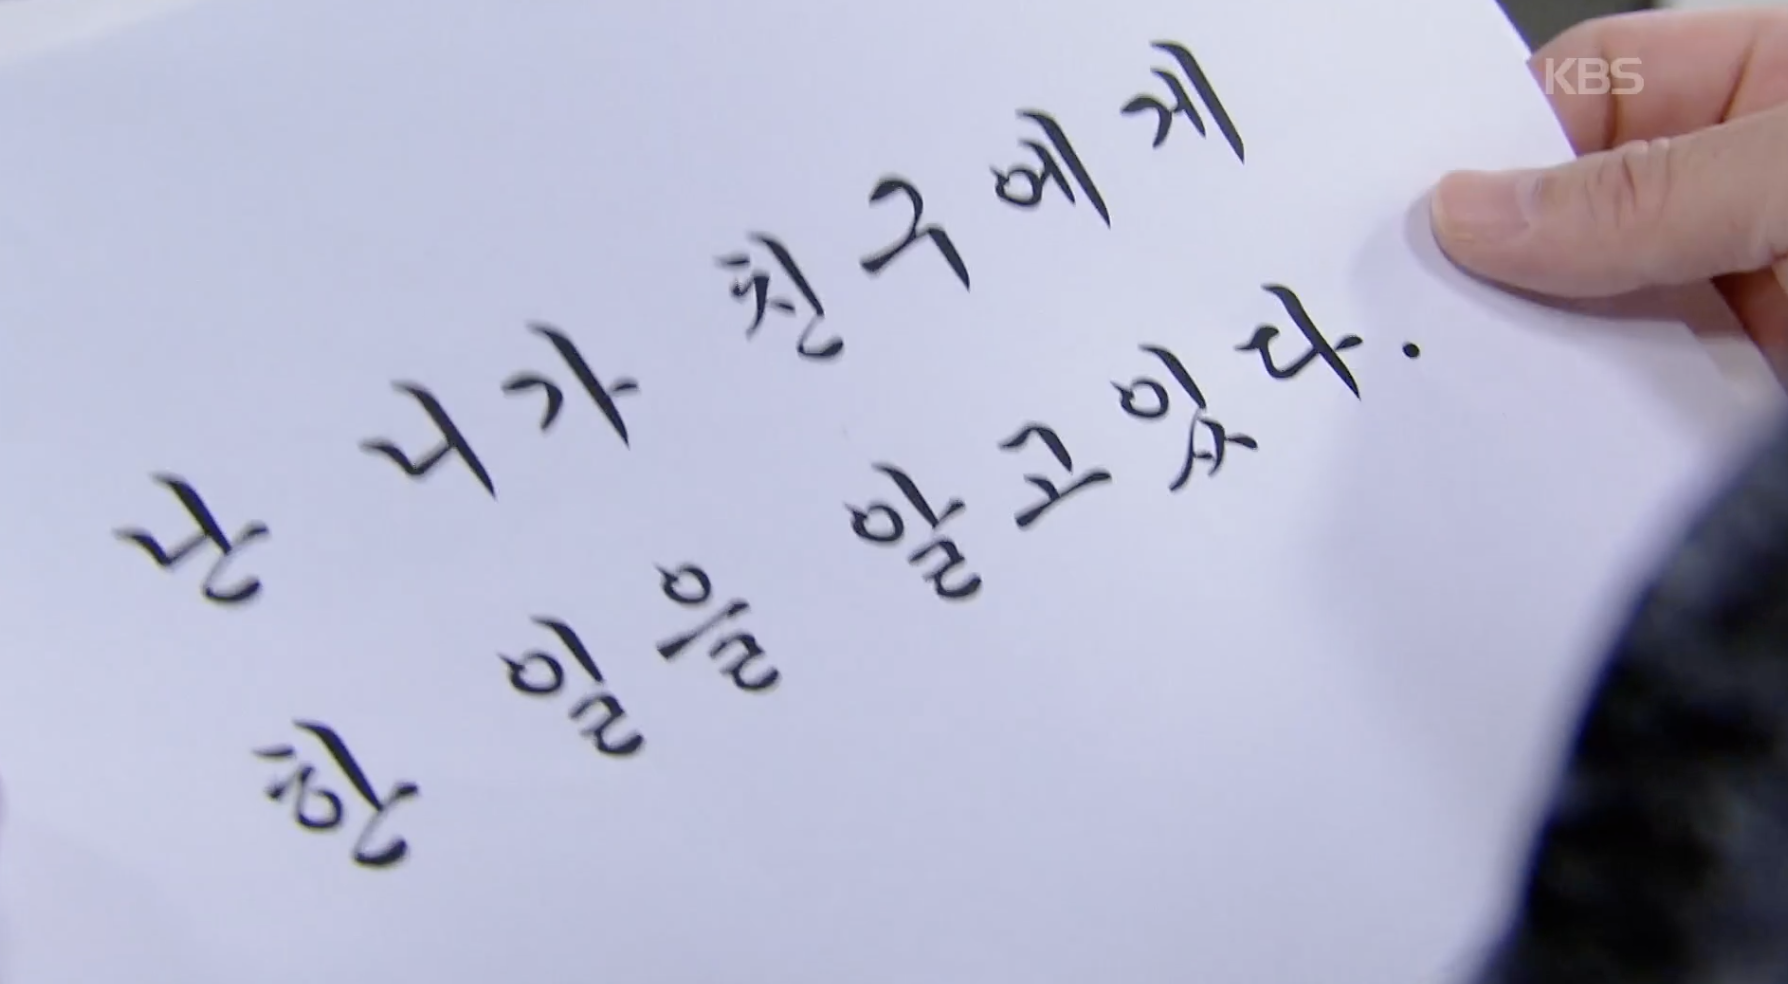 KBS
난 니가 친구에게
한 일을 알고있다.